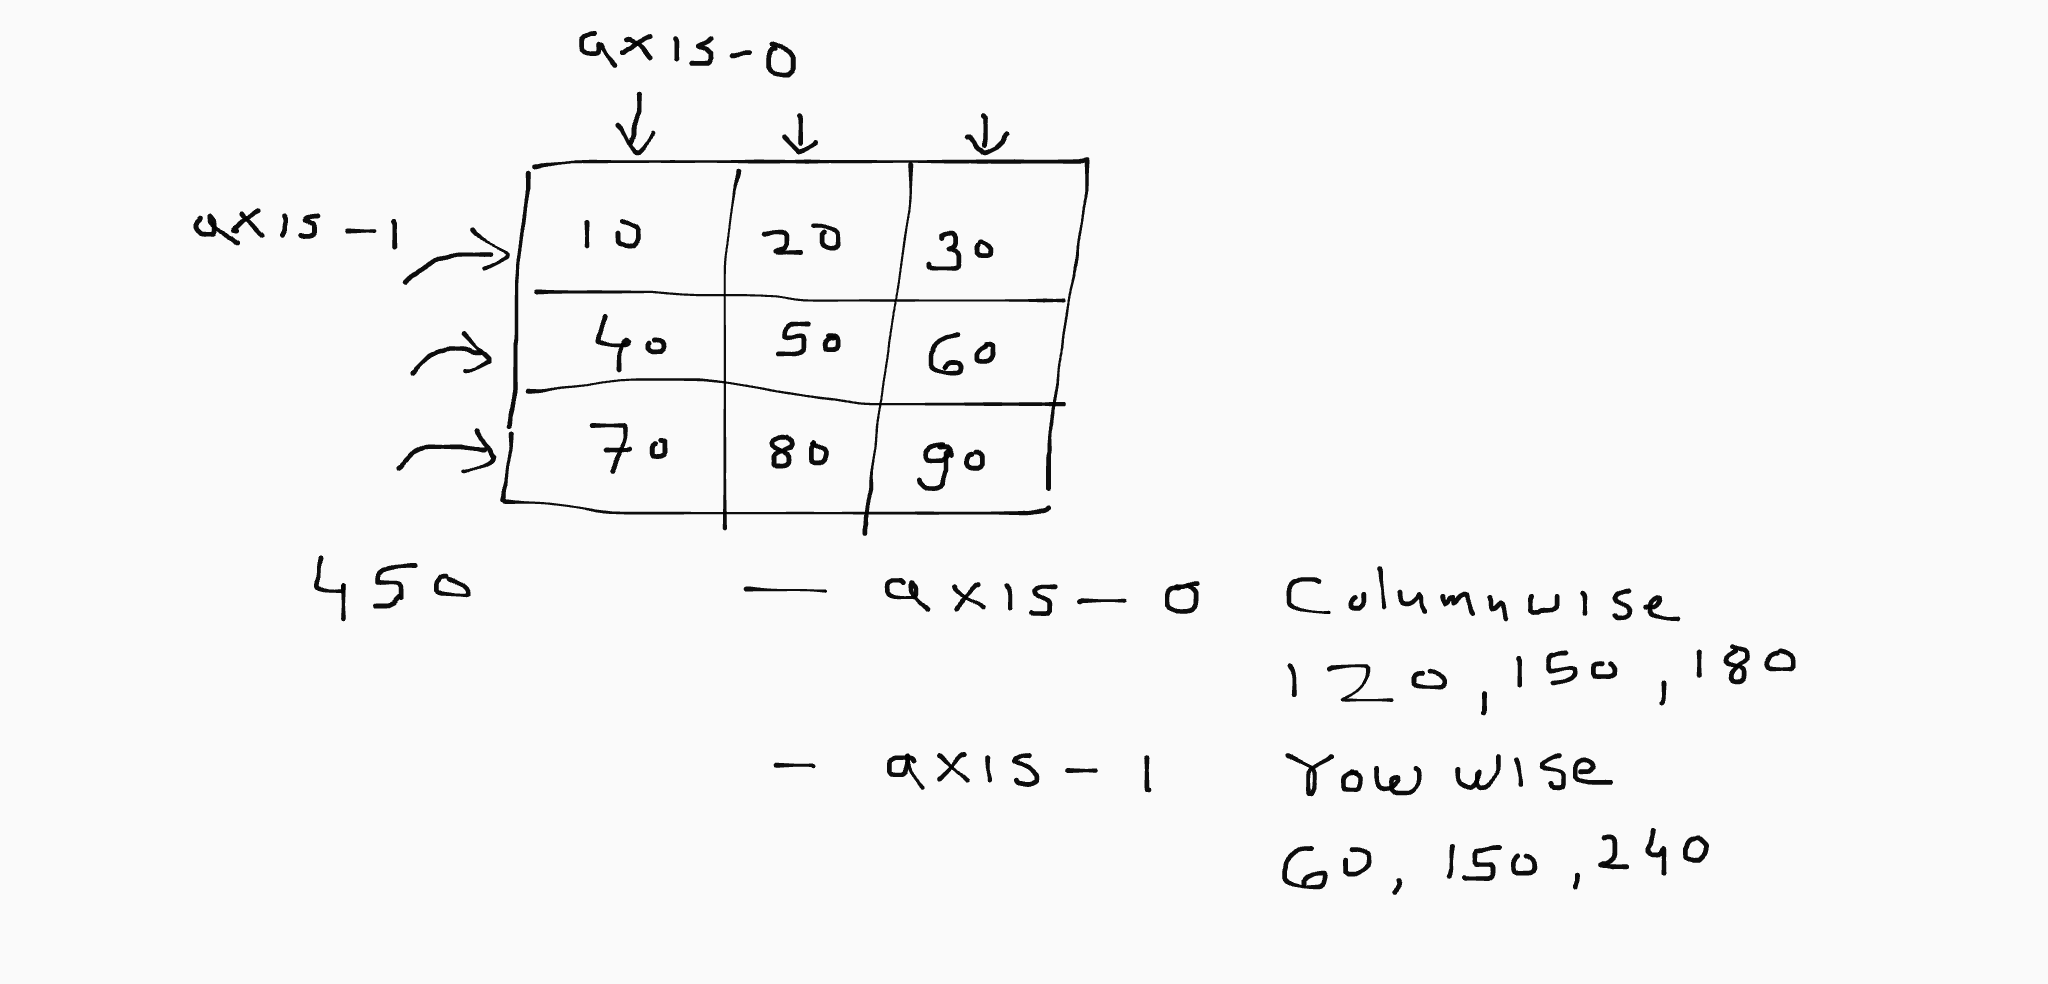 axis-0
axis-1
10 20 30
40 50 60
70 80 90
450 — axis-0 Columnwise
120, 150, 180
- axis-1 row wise
60, 150, 240